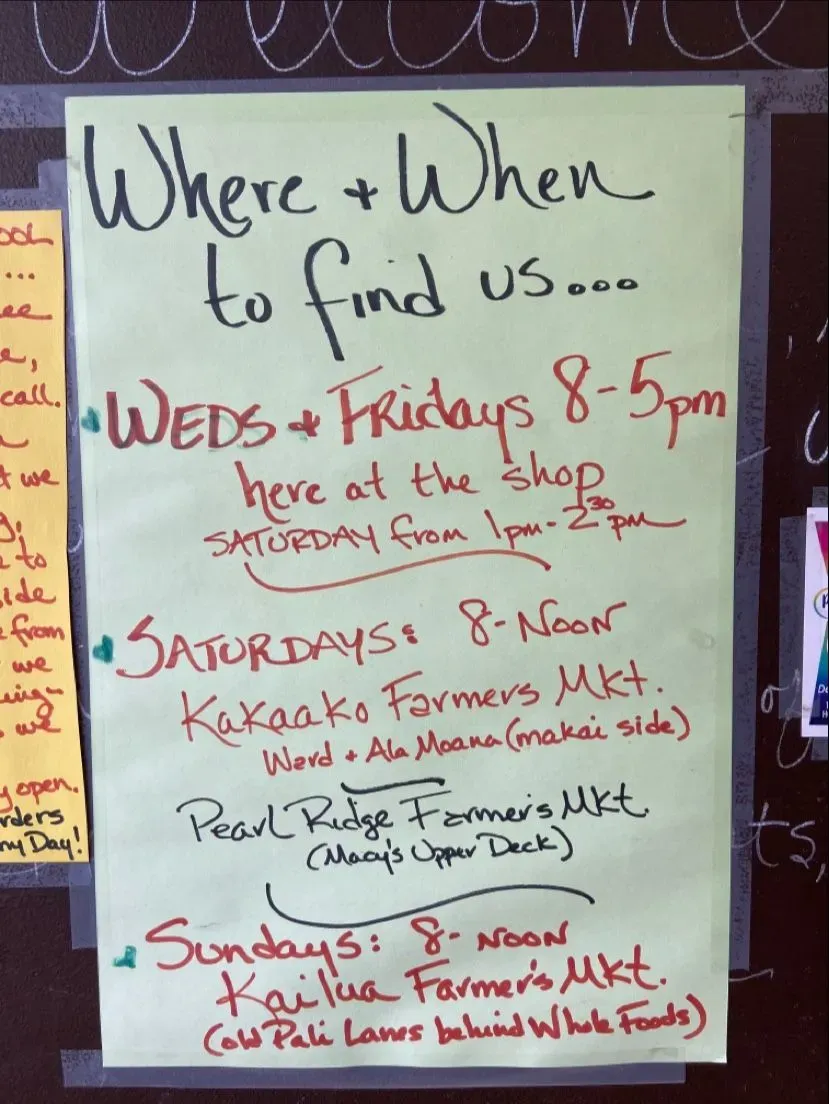 Welcome
Where + When
to find us...
WEDS + FRidays 8-5pm
here at the shop
SATURDAY from 1pm-2³⁰pm
SATURDAYS: 8-NOON
Kakaako Farmers Mkt.
Ward + Ala Moana (makai side)
Pearl Ridge Farmer's Mkt.
(Macy's Upper Deck)
Sundays: 8-NOON
Kailua Farmer's Mkt.
(old Pali Lanes behind Whole Foods)
...
call.
we
to
from
we
we
open.
ny Day!
ts,